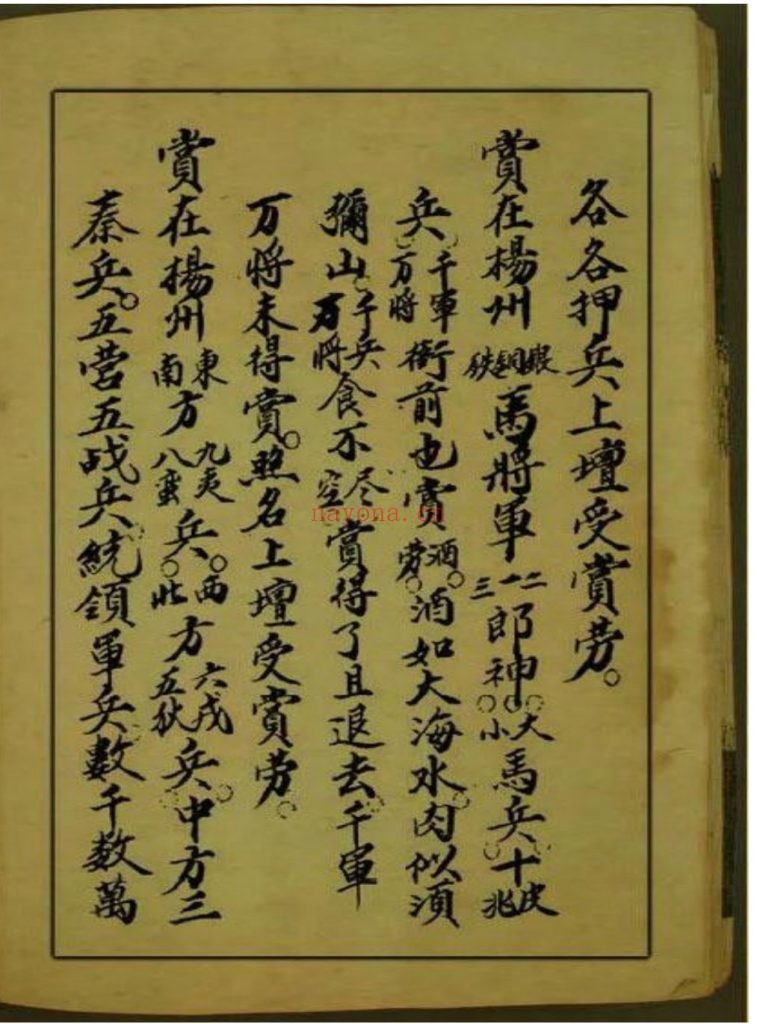 各各押兵上壇受賞劳。
賞在楊州銀銅鉄馬將軍二一三郎神。大小馬兵。十皮兆
兵。千軍万將衙前也賞酒劳。酒如大海水。肉似湏
彌山。千兵万將食不尽空賞得了且退去。千軍
万将未得賞。照名上壇受賞劳。
賞在楊州東南方九夷八蛮兵。西北方六戎五狄兵。中方三
秦兵。五营五战兵。統領軍兵數千数萬
nayona.cn